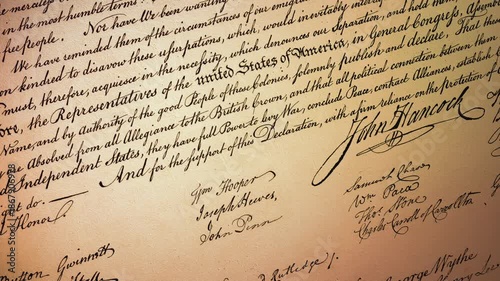 in the most humble terms
free people. Nor have We been wanting
We have reminded them of the circumstances of our emigration
kindred to disavow these usurpations, which, would inevitably
must, therefore, acquiesce in the necessity, which denounces our Separation, and hold them
ore, the Representatives of the united States of America, in General Congress, Assemb
Name, and by Authority of the good People of these Colonies, solemnly publish and declare, That these
are Absolved from all Allegiance to the British Crown, and that all political connection between them
Independent States, they have full Power to levy War, conclude Peace, contract Alliances, establish
do. — And for the support of this Declaration, with a firm reliance on the protection of
Honor.
John Hancock
Wm Hooper
Joseph Hewes,
John Penn
Samuel Chase
Wm Paca
Thos. Stone
Charles Carroll of Carrollton
Gwinnett
Rutledge
George Wythe
Adobe Stock